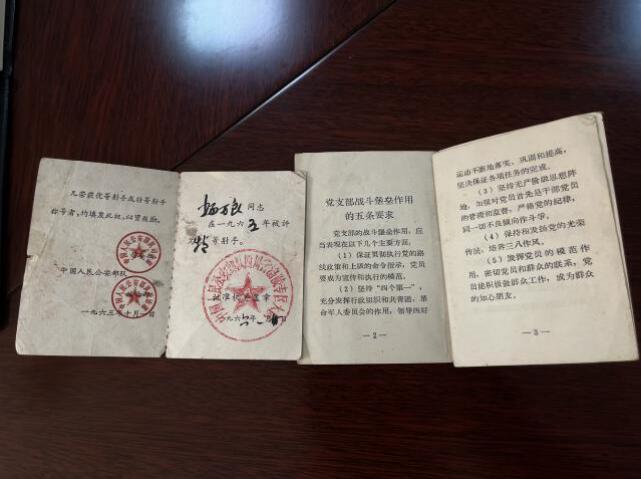 凡荣获优等射手或特等射手
称号者，均填发此证，以资鼓励。
中国人民公安部队
一九六三年十月
同志
在一九六五年被评
为特等射手。
批准机关盖章
一九六
党支部战斗堡垒作用
的五条要求
党支部的战斗堡垒作用，应
当表现在以下几个主要方面。
（1）保证贯彻执行党的路
线政策和上级的命令指示，党员
要成为宣传和执行的模范。
（2）坚持“四个第一”，
充分发挥行政组织和共青团、革
命军人委员会的作用，领导四好
—2—
运动不断地落实、巩固和提高，
坚决保证各项任务的完成。
（3）坚持无产阶级思想阵
地，加强对党员首先是干部党员
的管理和监督，严格党的纪律，
同一切不良倾向作斗争。
（4）保持和发扬党的光荣
传统，培养三八作风。
（5）发挥党员的模范作
用，密切党员和群众的联系，党
员能积极做群众工作，成为群众
的知心朋友。
—3—